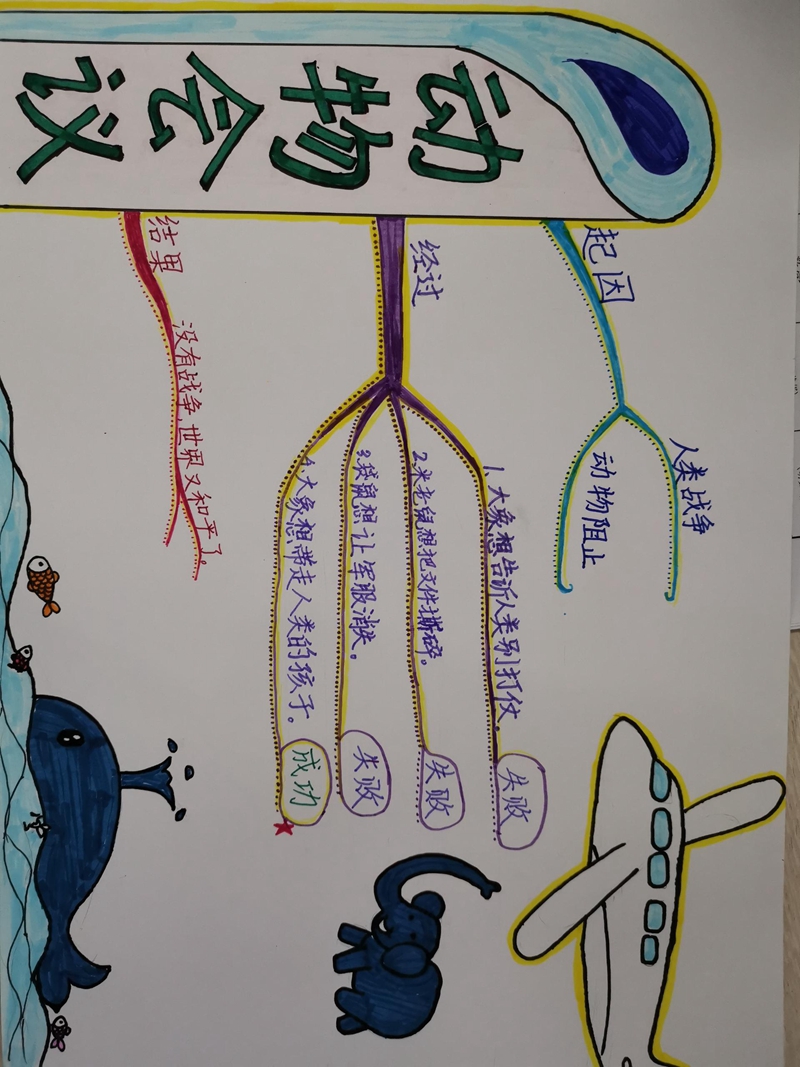 动物会议
起因
人类战争
动物阻止
经过
1.大象想告诉人类别打仗。
失败
2.米老鼠想把文件撕碎。
失败
3.袋鼠想让军服消失。
失败
4.大象想带走人类的孩子。
成功
结果
没有战争,世界又和平了。